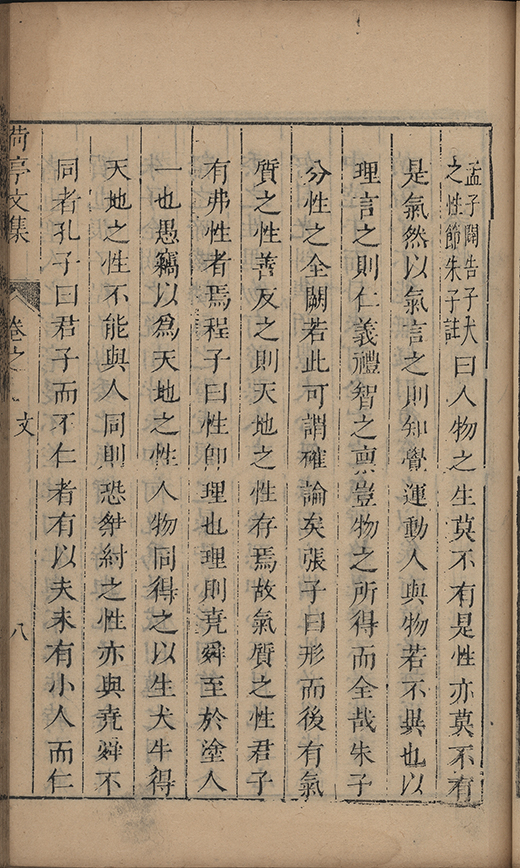 孟子闢告子犬
之性節朱子註
曰人物之生莫不有是性亦莫不有
是氣然以氣言之則知覺運動人與物若不異也以
理言之則仁義禮智之稟豈物之所得而全哉朱子
分性之全闕若此可謂確論矣張子曰形而後有氣
質之性善反之則天地之性存焉故氣質之性君子
有弗性者焉程子曰性卽理也理則堯舜至於塗人
一也愚竊以爲天地之性人物同得之以生犬牛得
天地之性不能與人同則恐桀紂之性亦與堯舜不
同者孔子曰君子而不仁者有以夫未有小人而仁
荷亭文集
卷之
文
八